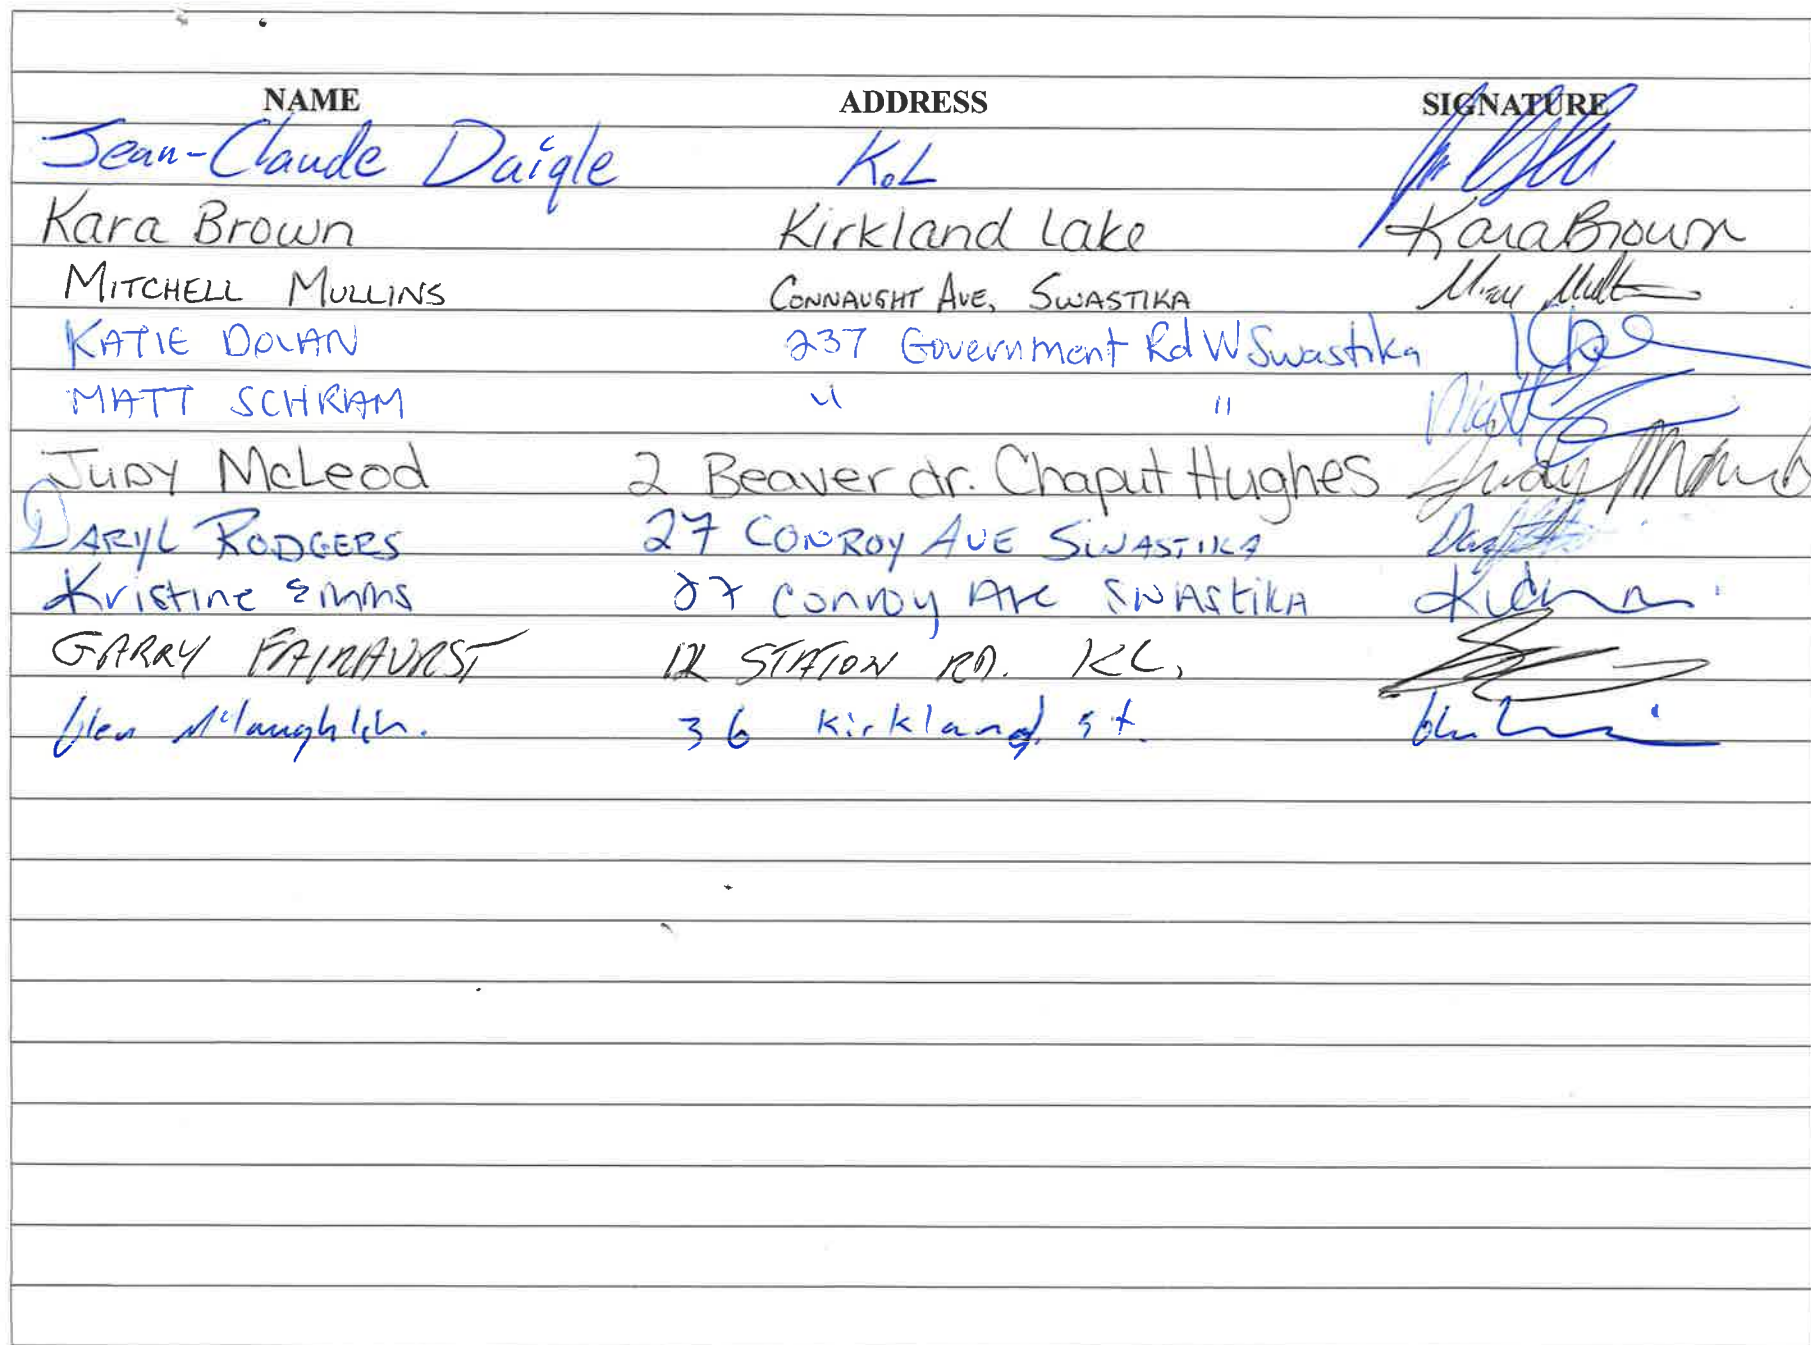 NAME ADDRESS SIGNATURE
Jean-Claude Daigle K.L
Kara Brown Kirkland Lake Kara Brown
MITCHELL MULLINS CONNAUGHT AVE, SWASTIKA
KATIE DOLAN 237 Government Rd W Swastika
MATT SCHRAM " " Matt
JUDY McLeod 2 Beaver dr. Chaput Hughes Judy
DARYL RODGERS 27 CONROY AVE SWASTIKA
Kristine Emms 27 Conroy Ave SWASTIKA
GARRY FAIRHURST STATION RD. KL,
Glen McLaughlin. 36 Kirkland st.